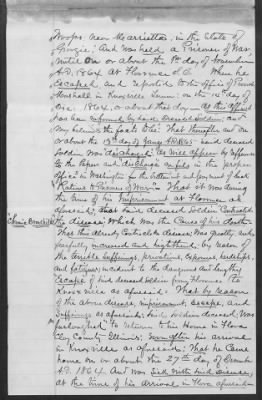 troops near Marietta, in the State of
Georgia; And was held a Prisoner of War
until on or about the 9th day of November
A.D. 1864 At Florence S.C. When he
Escaped, and reported to the office of Provost
Marshall in Knoxville Tenn: on the 12th day of
Dec. 1864, or about that day— As this affiant
has been informed by said deceased Soldier, and
believes the facts to be: That thereafter and on
or about the 13th day of 1865, said deceased
Soldier was discharged: As will appear by reference
to the Papers and discharge on file in the proper
office in Washington in the settlement and payment of back
Rations to Prisoners of War— That it was during
the time of his imprisonment at Florence as
aforesaid; that said deceased Soldier Contracted
Chronic Bronchitis
the disease; which was the Cause of his death—
That this already Contracted disease was greatly and
fearfully increased and heightened: by reason of
the terrible sufferings, privations, exposures, hardships,
and fatigues; incident to the dangerous and lengthy
Escape of said deceased Soldier from Florence to
Knoxville as aforesaid: That by Reason
of the above disease, imprisonment, escape, and
Sufferings as aforesaid: Said Soldier deceased; Was
furloughed to return to his home in Flora
Clay County Illinois: Soon after his arrival
in Knoxville as aforesaid: That he Came
home on or about the 27th day of
A.D. 1864. And was Sick with said disease;
at the time of his arrival in Flora aforesaid